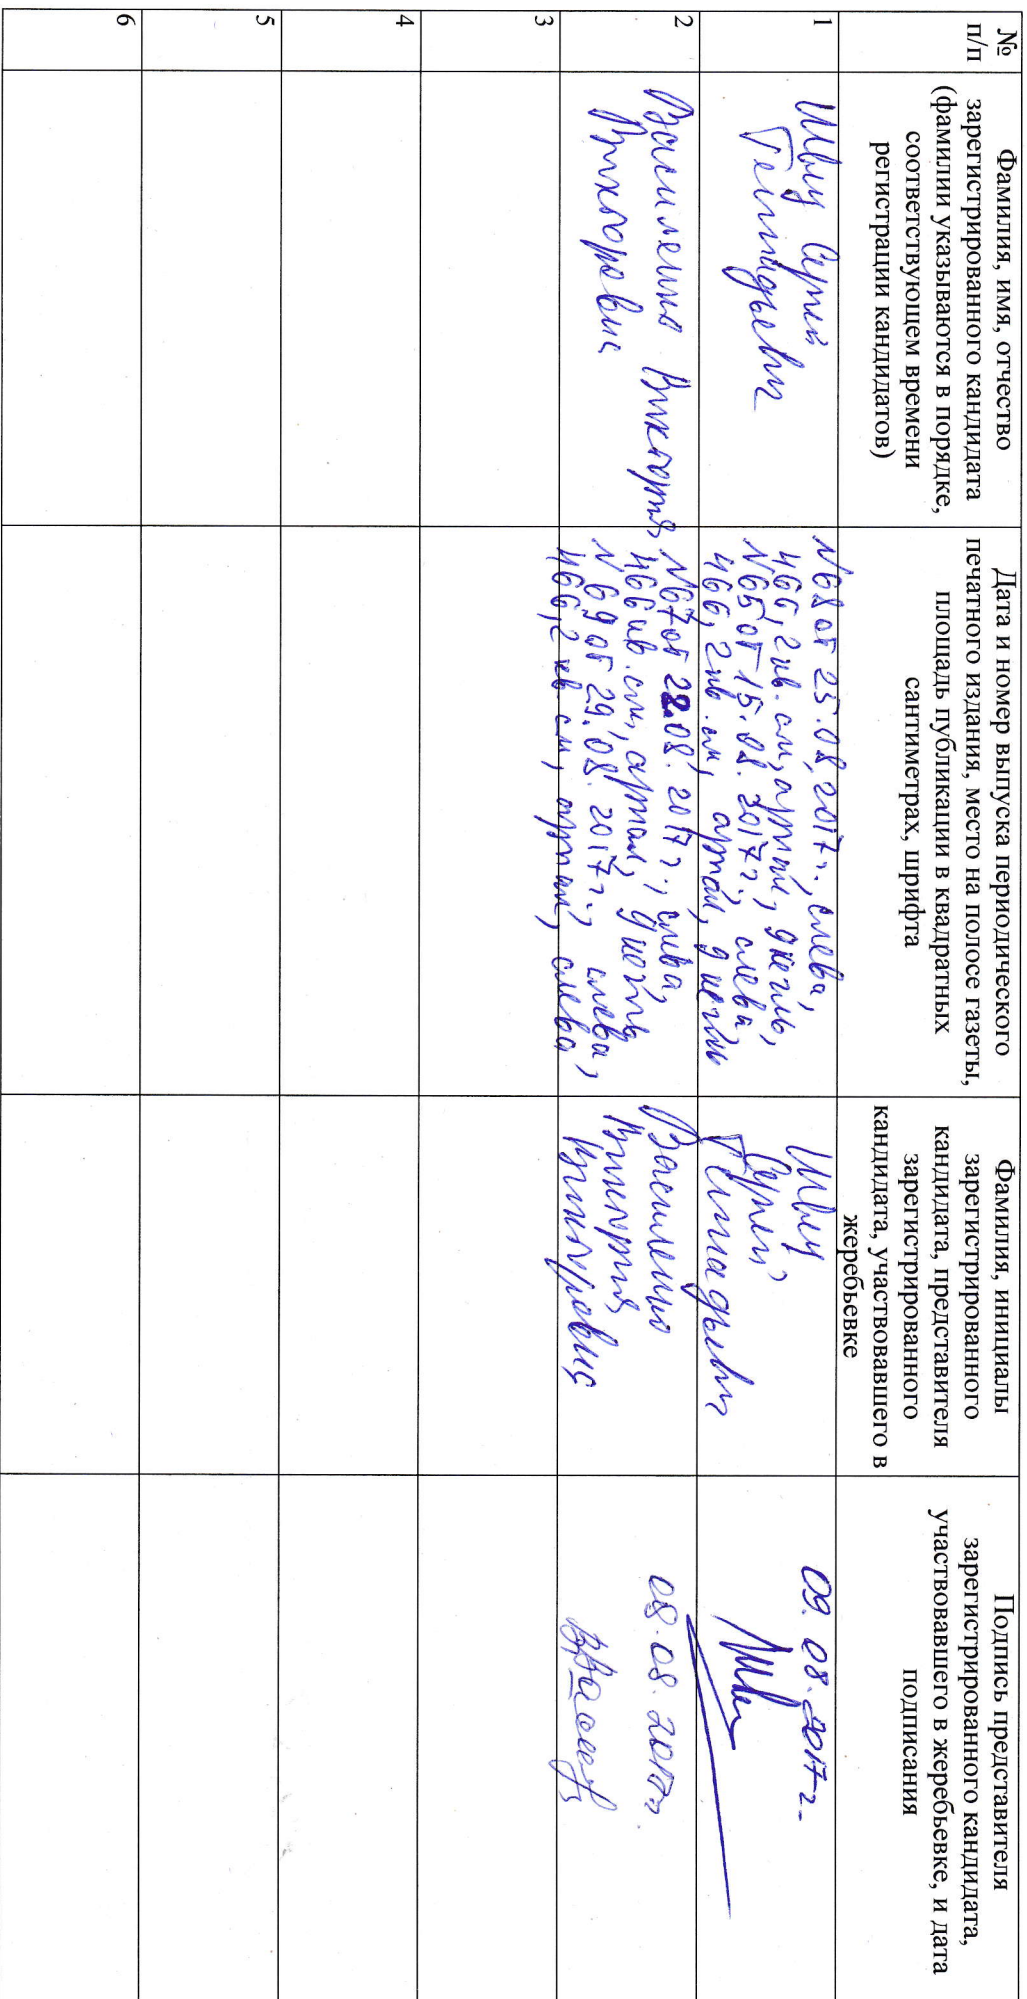 №
п/п
Фамилия, имя, отчество
зарегистрированного кандидата
(фамилии указываются в порядке,
соответствующем времени
регистрации кандидатов)
Дата и номер выпуска периодического
печатного издания, место на полосе газеты,
площадь публикации в квадратных
сантиметрах, шрифта
Фамилия, инициалы
зарегистрированного
кандидата, представителя
зарегистрированного
кандидата, участвовавшего в
жеребьевке
Подпись представителя
зарегистрированного кандидата,
участвовавшего в жеребьевке, и дата
подписания
1
Швец Сергей
Геннадьевич
№68 от 25.08.2017г., слева,
466,2 кв.см, ариал, 9 кегль,
№65 от 15.08.2017г., слева,
466,2 кв.см, ариал, 9 кегль
Швец
Сергей
Геннадьевич
09.08.2017г.
2
Василенко Виктория
Викторовна
№67 от 22.08.2017г., слева,
466 кв.см, ариал, 9 кегль
№69 от 29.08.2017г., слева,
466,2 кв.см, ариал, слева
Василенко
Виктория
Викторовна
08.08.2017г
3
4
5
6